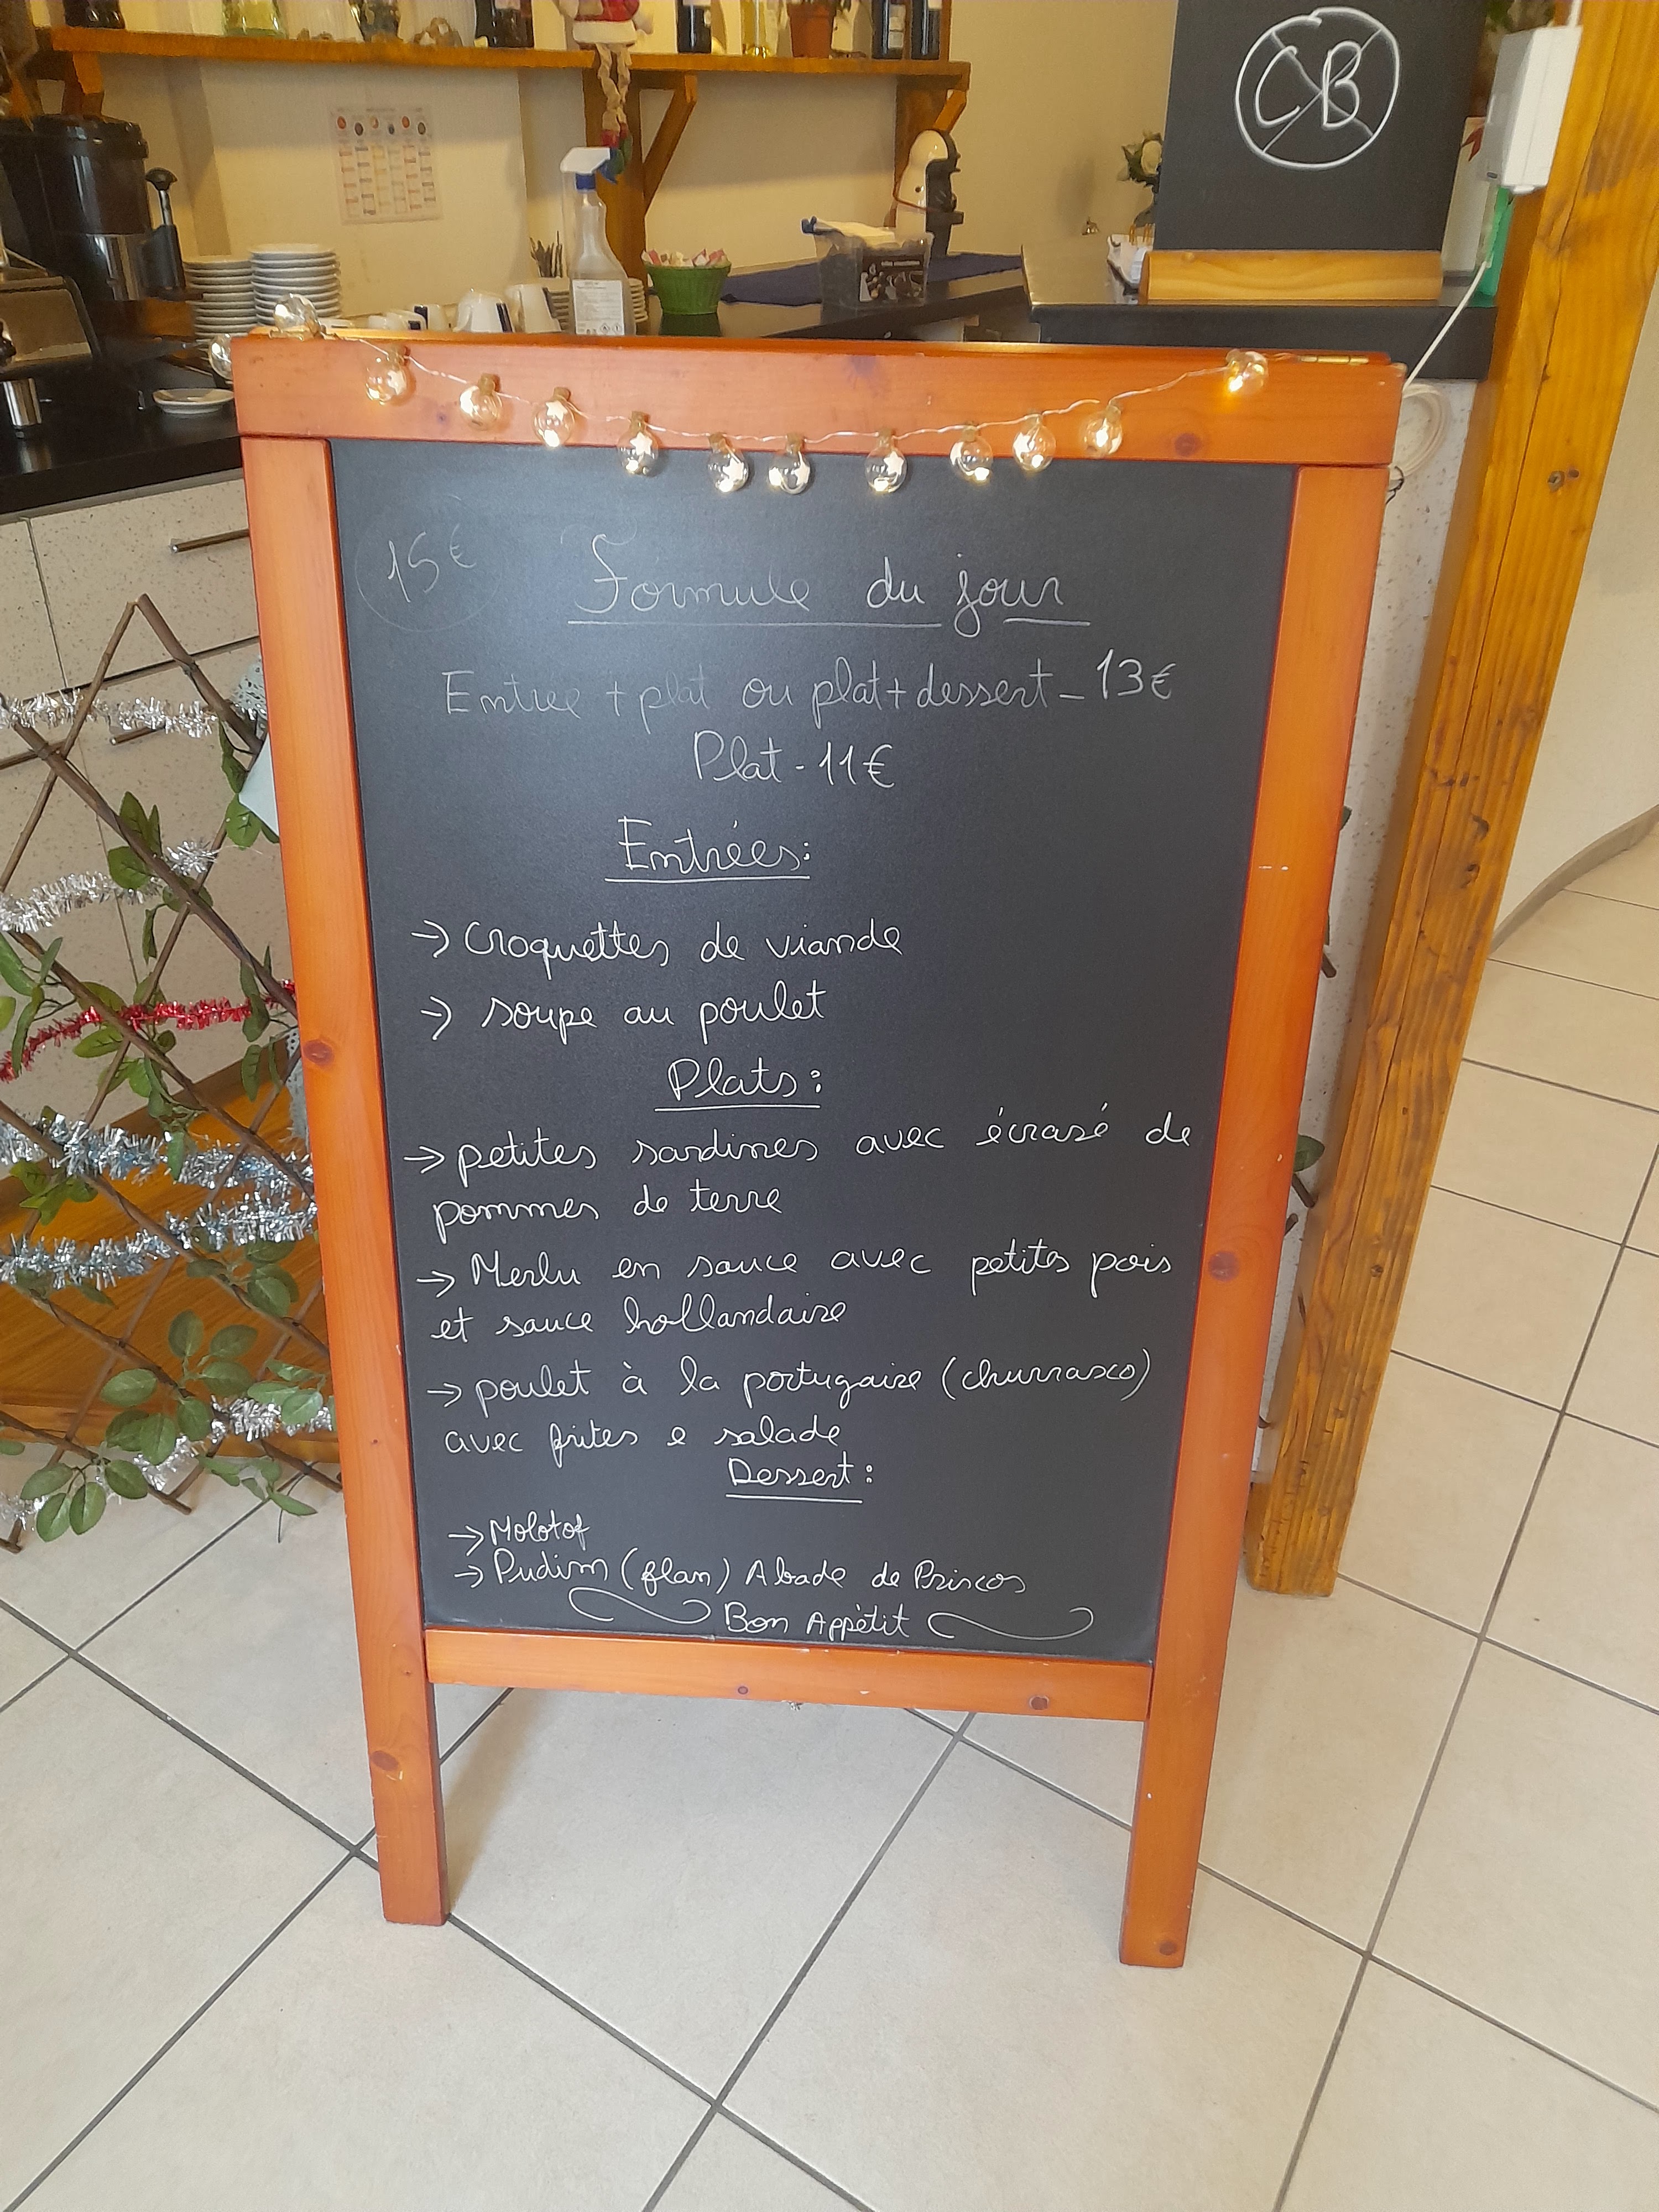 CB
15€
Formule du jour
Entrée + plat ou plat + dessert - 13€
Plat - 11€
Entrées:
→ Croquettes de viande
→ soupe au poulet
Plats:
→ petites sardines avec écrasé de
pommes de terre
→ Merlu en sauce avec petits pois
et sauce hollandaise
→ poulet à la portugaise (churrasco)
avec frites e salade
Dessert:
→ Molotof
→ Pudim (flan) Abade de Priscos
Bon Appétit